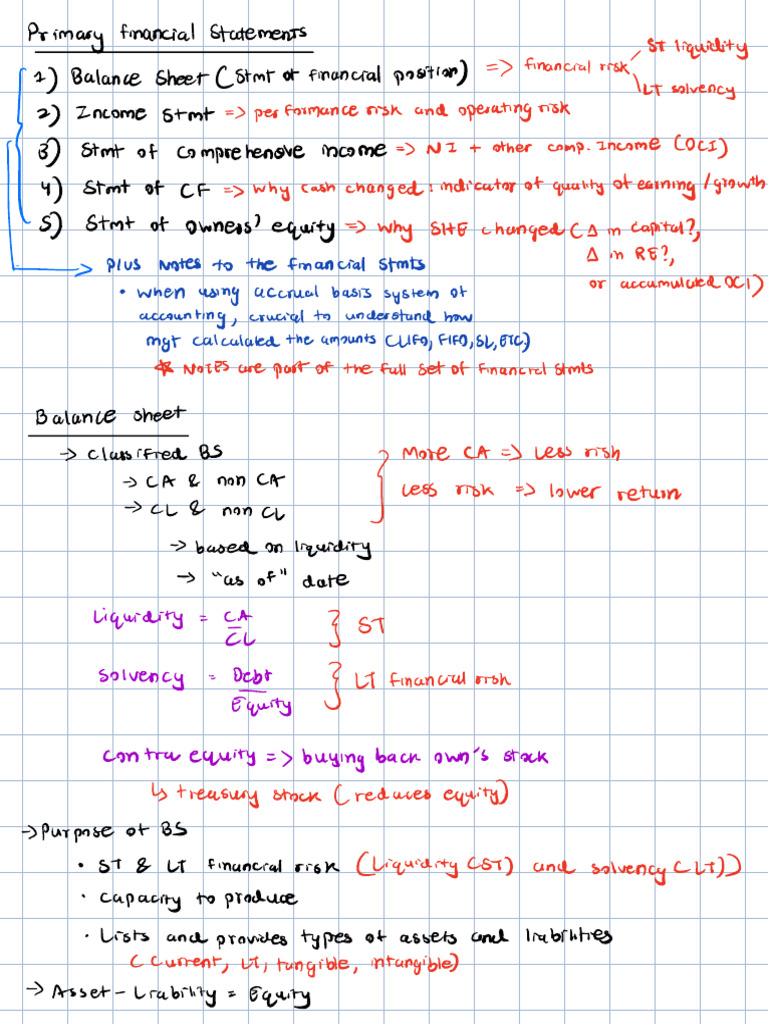 Primary financial statements
1) Balance Sheet (Stmt of financial position) => financial risk
ST liquidity
LT solvency
2) Income Stmt => performance risk and operating risk
3) Stmt of comprehensive income => NI + other comp. Income (OCI)
4) Stmt of CF => why cash changed: indicator of quality of earning/growth
5) Stmt of owners' equity => why SHE changed (Δ in capital?,
Δ in RE?,
or accumulated OCI)
plus notes to the financial stmts
• when using accrual basis system of
accounting, crucial to understand how
mgt calculated the amounts (LIFO, FIFO, SL, ETC.)
* Notes are part of the full set of financial stmts
Balance sheet
→ Classified BS
→ CA & non CA
→ CL & non CL
More CA => Less risk
Less risk => lower return
→ based on liquidity
→ "as of" date
Liquidity = CA/CL } ST
Solvency = Debt/Equity } LT financial risk
contra equity => buying back own's stock
↳ treasury stock (reduces equity)
→ Purpose of BS
• ST & LT financial risk (Liquidity (ST) and solvency (LT))
• capacity to produce
• Lists and provides types of assets and liabilities
(Current, LT, tangible, intangible)
→ Asset - Liability = Equity